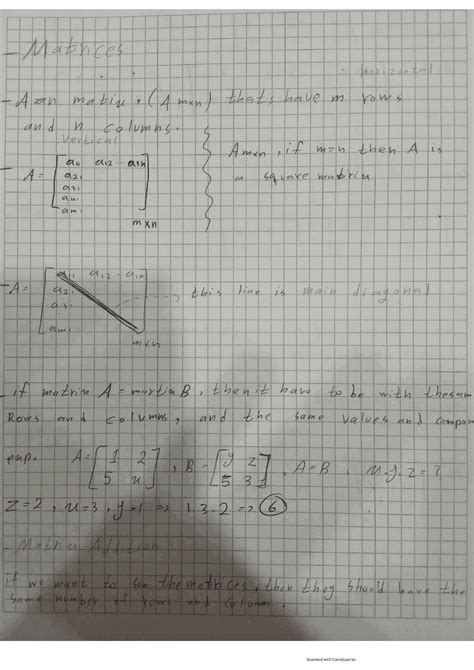 - Matrices
horizontal
- A an matix . (A mxn) thats have m rows
and n columns.
Vertical
- A = [ a11 a12 - a1n
a21
a31
a41
am1 ] mxn
Amxn, if m=n then A is
a square matrix
- A = [ a11 a12 - a1n
a21
a31
am1 ] mxn
this line is main diagonal
- if matrix A = martix B, then it have to be with the sam
Rows and columns, and the same values and compon
exp. A = [ 1 2
5 x ] , B - [ y z
5 3 ] , A = B . x.y.z = ?
z = 2 , x = 3 , y . 1 => 1.3.2 => 6
- Matrix Addition
if we want to sum the matrices, then they should have the
same number of rows and column.
Scanned with CamScanner